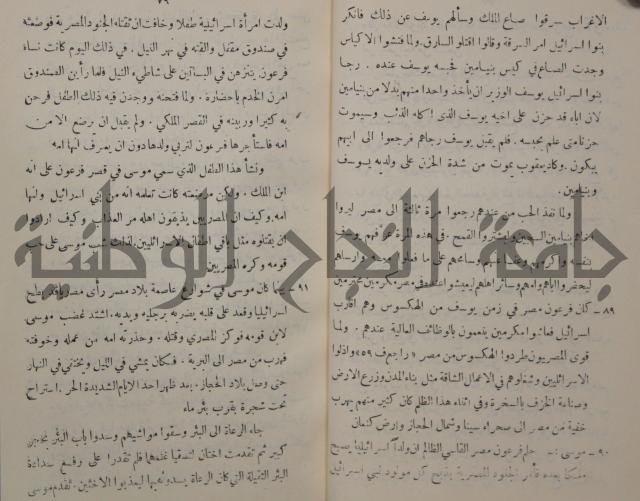 الاغراب سرقوا صاع الملك وسألهم يوسف عن ذلك فانكر
بنوا اسرائيل امر السرقة وقالوا اقتلوا السارق. ولما فتشوا الاكياس
وجدت الصاع في كيس بنيامين فحبسه يوسف عنده. رجا
بنوا اسرائيل يوسف الوزير ان يأخذ واحدا منهم بدلا من بنيامين
لان اباه قد حزن على اخيه يوسف الذى اكله الذئب وسيموت
حزنا متى علم بحبسه. فلم يقبل يوسف رجاهم فرجعوا الى ابيهم
يبكون. وكاد يعقوب يموت من شدة الحزن على ولديه يوسف
وبنيامين.
ولما نفذ الحب من عندهم رجعوا مرة ثالثة الى مصر ليروا
في هذه المرة
ليحضروا اباهم
٨٩ - كان فرعون مصر في زمن يوسف من الهكسوس وهم اقارب
اسرائيل فعاشوا مكرمين ينعمون بالوظائف العالية عندهم. ولما
قوى المصريون طردوا الهكسوس من مصر « راجع ف ٥٩ » واذلوا
الاسرائليين وشغلوهم في الاعمال الشاقة مثل بناء المدن وزرع الارض
وصناعة الخزف بالسخرة وفي اثناء هذا الظلم كان كثير منهم يهرب
خفية من مصر الى صحراء سينا وشمال الحجاز وارض كنعان
٩٠ - موسى : - حلم فرعون مصر القاسي الظالم ان ولدا اسرائيليا يصبح
كل مولود لبني اسرائيل
ولدت امرأة اسرائيلية طفلا وخافت ان تقتله الجنود المصرية فوضعته
في صندوق مقفل والقته في نهر النيل. في ذلك اليوم كانت نساء
فرعون يتنزهن في البساتين على شاطىء النيل فلما رأين الصندوق
امرن الخدم باحضاره. ولما فتحنه ووجدن فيه ذلك الطفل فرحن
به كثيرا وربينه في القصر الملكي. ولم يقبل ان يرضع الا من
امه فاستأجرها فرعون لتربي ولدها دون ان يعرف انها امه
ونشأ هذا الطفل الذي سمي موسى في قصر فرعون على انه
ابن الملك. ولكن مرضعته كانت تعلمه انه من بني اسرائيل وانها
امه وكيف ان المصريين يذيقون اهله مر العذاب وكيف ارادوا
ان يقتلوه مثل باقي اطفال الاسرائليين. لذلك شب موسى على حب
قومه وكره المصريين
٩١ - بينما كان موسى في شوارع عاصمة بلاد مصر رأى مصريا قد بطح
اسرائيليا وقعد على قلبه يضربه برجليه ويديه. اشتد غضب موسى
لابن قومه فوكز المصري وقتله. وحذرته امه من عمله وخوفته
فهرب من مصر الى البرية. فكان يمشي في الليل ويختفي في النهار
حتى وصل بلاد الحجاز. بعد ظهر احد الايام الشديدة الحر. استراح
تحت شجرة بقرب بئر ماء
جاء الرعاة الى البئر وسقوا مواشيهم وسدوا باب البئر بحجر
كبير ثم تقدمت اختان لتسقيا غنمهما فلم تقدرا على رفع سدادة
البئر الثقيلة التي كان الرعاة يسدونه بها ليعذبوا الاختين. تقدم موسى
جامعة النجاح الوطنية